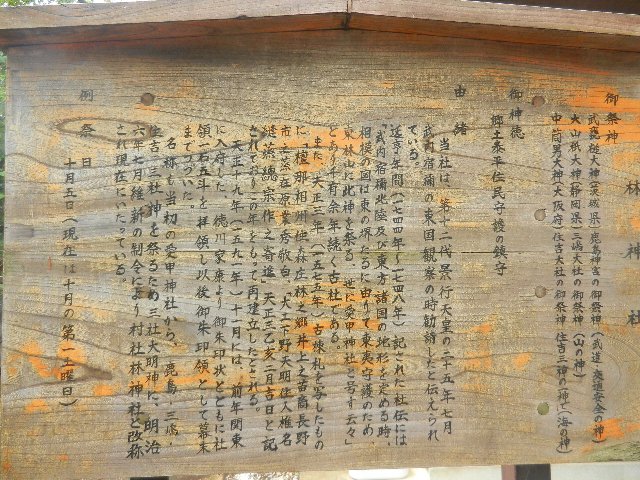 林神社
御祭神
武甕槌大神(茨城県)鹿島神宮の御祭神(武道・交通安全の神)
大山祇大神(静岡県)三嶋大社の御祭神(山の神)
中筒男大神(大阪府)住吉大社の御祭神 住吉三神の神で(海の神)
御神徳
郷土永平住民守護の鎮守
由緒
当社は、第十二代景行天皇の二十五年七月
武内宿禰の東国観察の時勧請したと伝えられ
ている。
延享年間(一七四四年〜一七四八年)記された社伝には
「武内宿禰北陸及び東方諸国の地形を定める時、
相模の国は東の堺たるに由りて東夷守護のため
東林山に此神を祭る 世に愛甲神社と号す云々」
とあり千有余年続く古社である。
また、天正三年(一五七五年)古棟札を写したもの
に「檀那相州 森庄林之郷井上之苗裔長野
市之亟在原業秀敬白、大工下野天明住人椎名
継 宗作之奇進」天正三乙亥二月吉日と記
されておりこの年をもって再建立したとされる。
天正十九年(一五九一年)十月には、前年関東
に入府した、徳川家康より御朱印状とともに社
領一石五斗を拝領し以後御朱印領として幕末
までつづいた。
名称も当初の愛甲神社から、鹿島・三嶋・
住吉三社神を祭るため三社大明神に、明治
六年七月維新の制令により村社林神社と改称
され現在にいたっている。
例祭日
十月五日(現在は十月の第一土曜日)